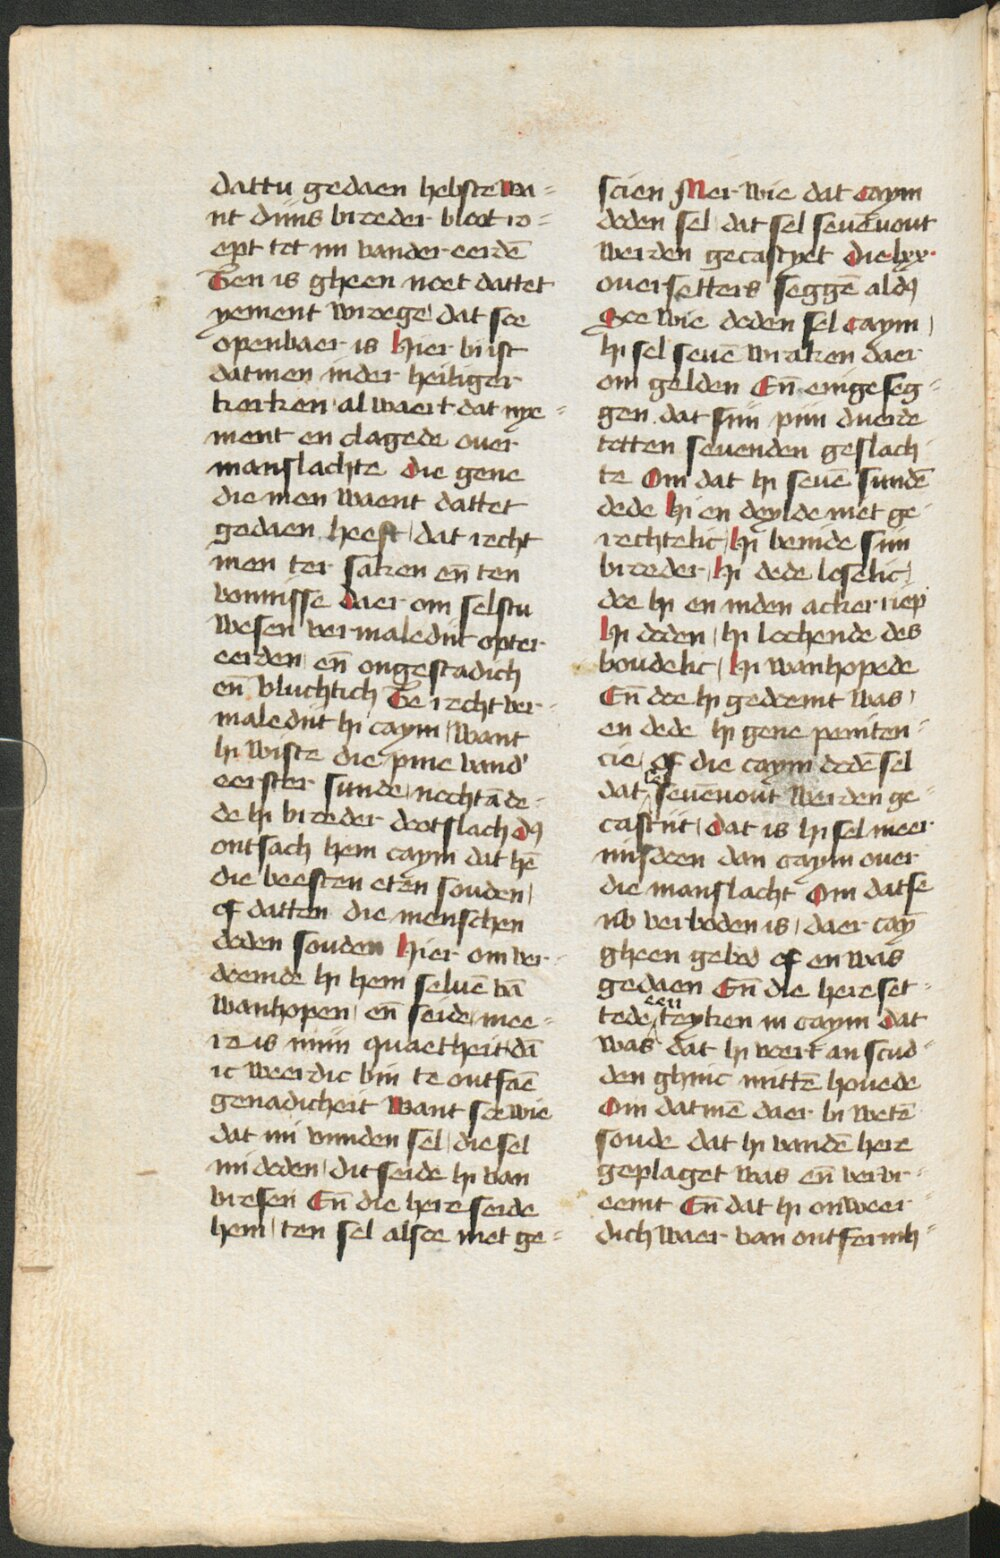 dattu gedaen hebste Wa=
nt dijns brueder bloet ro=
ept tot mi vander eerdē
Ten is gheen noet dattet
yement wroege dat soe
openbaer is Hier bi ist
datmen inder heiliger
kerken al waert dat nye=
ment en clagede ouer
manslachte Die gene
die men waent dattet
gedaen heeft dat recht
men ter saken en̄ ten
vonnisse Daer om selstu
wesen vermaledijt opter
eerden en̄ ongestadich
en̄ vluchtich Te recht ver=
maledijt hi caym want
hi wiste die pine vand'
eerster sunde nochtā de=
de hi brueder dootslach Dꝰ
ontsach hem caym dat hē
die beesten eten souden
of datten die menschen
doden souden Hier om ver=
doemde hi hem seluē vā
wanhopen en̄ seide mee=
re is mijn quaetheit dā
ic weerdic bin te ontfaē
genadicheit Want soe wie
dat mi vijnden sel die sel
mi doden dit seide hi van
vresen En̄ die here seide
hem ten sel alsoe niet ge=
scien Mer wie dat caym
doden sel dat sel seuēvout
werden gecastyet Die lxx.
ouersetters seggē aldꝰ
Soe wie doden sel caym
hi sel seuē wraken daer
om gelden En̄ enige seg=
gen dat sijn pijn duerde
totten seuenden geslach=
te Om dat hi seuē sundē
dede Hi en deylde niet ge=
rechtelic Hi benide sijn
brueder Hi dede loselic
doe hi en inden acker riep
Hi doden hi lochende des
boudelic Hi wanhopede
En̄ doe hi gedoemt was
en dede hi gene peniten=
cie of die caym dodē sel
dat lxx seuenvout werden ge=
castijt Dat is hi sel meer
misdoen dan caym ouer
die manslacht Om datse
nv verboden is daer cay̅
gheen gebod of en was
gedaen En̄ die here set=
tede een teyken in caym Dat
was dat hi voert an scud=
den ghinc mittē houede
Om datmē daer bi wetē
soude dat hi vandē here
geplaget was en̄ vervr=
eemt En̄ dat hi onweer=
dich waer van ontfermh=